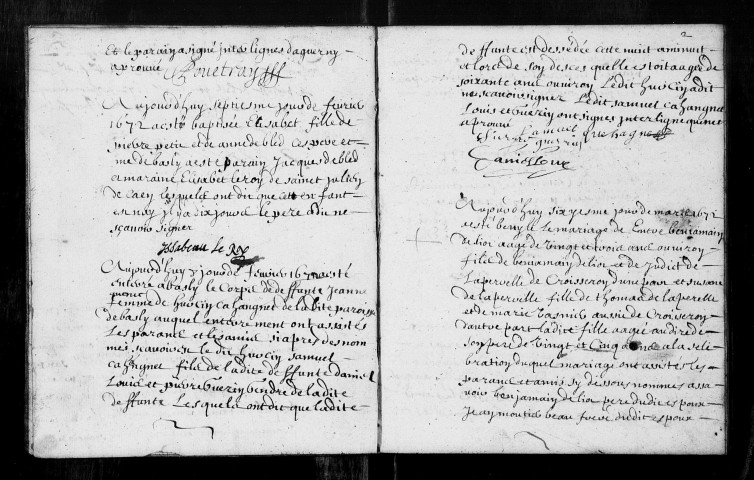 Et le parain a signé interlignes daguerny
aprouvé Bouetray
Aujourdhuy septiesme jour de febvrier
1672 a esté baptisée Elisabet fille de
pierre petit et de anne de bled ses pere et
mere de basly a esté parain Jacques de bled
et maraine Elisabet le roy de sainct Julien
de caen lesquels ont dit que cette enfant
est nay il y a dix jours le pere a dit ne
sçavoir signer
Issabeau le Roy
Aujourdhuy jour de febvrier 1672 a esté
enterré a basly le corps de deffunte Jeanne
femme de cahagnet de ladite paroisse
de basly auquel enterrement ont assistés
Les parans et les amis si apres desnom
més sçavoir le dit samuel
cahagnet fils de ladite deffunte daniel
Louis et pierre Guerin gendre de ladite
deffunte Lesquels ont dit que ladite
2
deffunte est dessedée cette nuit a minuit
et lors de son desces quelle estoit aagée de
soixante ans ou viron Le dit a dit
ne scavoir signer Le dit samuel cahagnet
Louis et Guerin ont signés interligne
aprouvé Samuel Cahagnet
Pierre guerin
Daniel Louis
Aujourdhuy sixyesme jour de mars 1672
a esté beny le mariage de benjamain
delior aagé de vingt et trois ans ou viron
fils de benjamain delior et de Judict de
Lapervelle de Croisseroy dune part et susane
de lapervelle fille de thomas de laperelle
et de marie basnier aussi de Croisseroy
dautre part ladite fille aagée au dire de
son pere de vingt et cinq ans a la sele
bration duquel mariage ont assistés les
parans et amis sy dessous nommés assa
voir benjamain delior pere dudit espoux
Jeay moutier beau frere dudit espoux